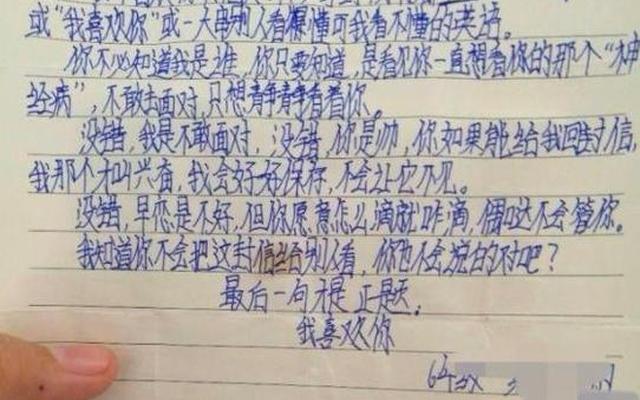 或“我喜欢你”或一大串别人看得懂可我看不懂的英语。
你不必知道我是谁，你只要知道，是看见你一直想看你的那个“神
经病”，不敢去面对，只想静静看着你。
没错，我是不敢面对，没错，你是帅，你如果能给我回封信，
我那个叫兴奋，我会好好保存，不会让它不见。
没错，早恋是不好，但你愿意怎么滴就咋滴，偶哒不会管你。
我知道你不会把这封信给别人看，你也不会说的对吧？
最后一句才是正题，
我喜欢你
6年级